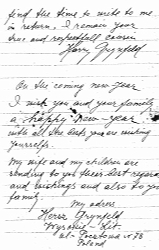 find the time to write to me
in return. I remain your
true and respectfull cousin
Harry Grynfeld
On the coming new-year
I wish you and your family
a happy new-year
with all the best you are wishing
yourselfs.
My wife and my children are
sending to you their best regards
and wishings and also to your
family.
My adress
Hersz Grynfeld
Wyszków - Lit
Poland